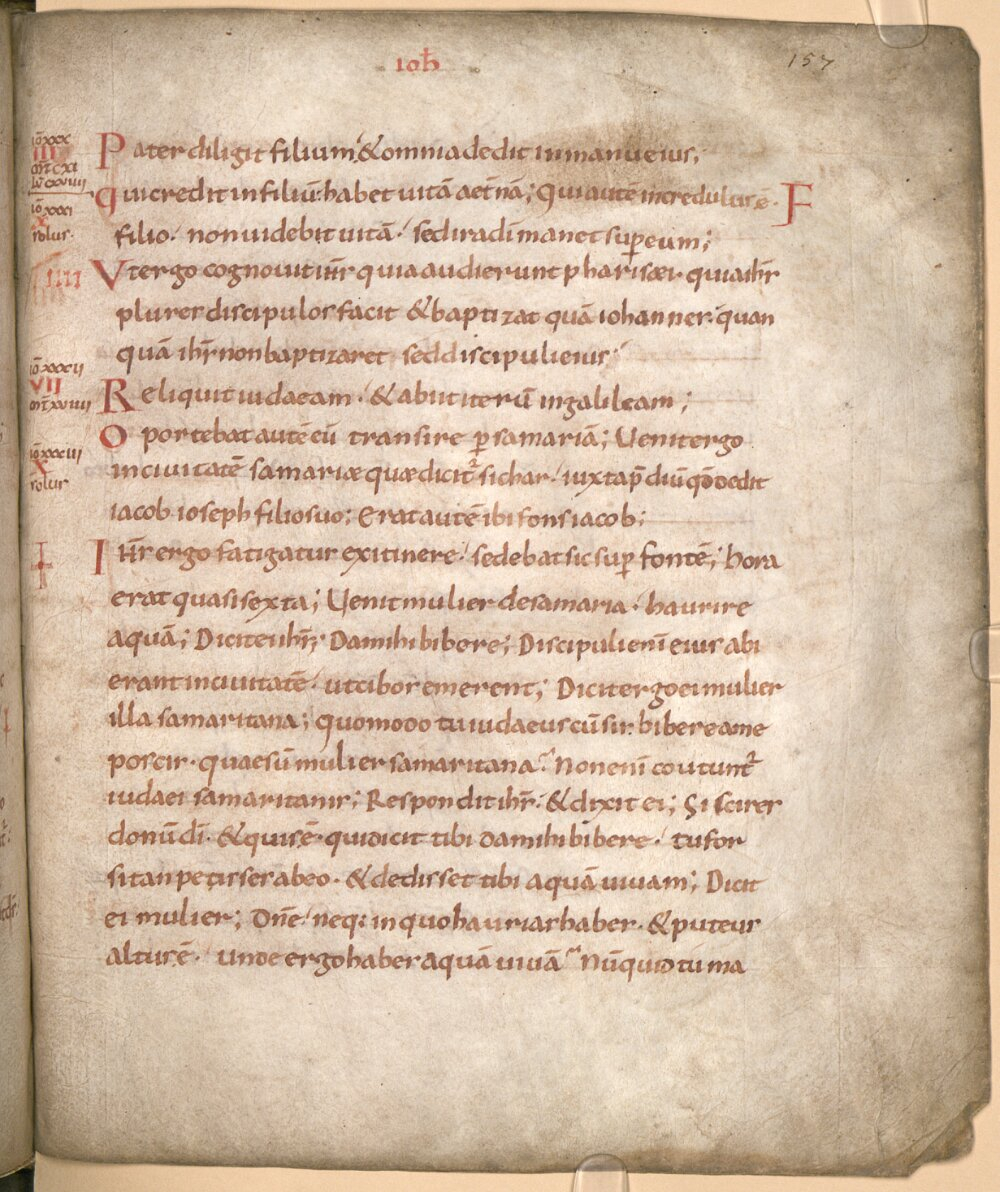 ioħ
157
Pater diligit filium· & omnia dedit in manu eius;
qui credit in filiū· habet uitā aet̄nā; qui autē incredulus ē· F
filio· non uidebit uitā· sed ira dī manet sup̱ eum;
Vt ergo cognouit ih̄s quia audierunt pharisaei quia ih̄s
plures discipulos facit & baptizat quā iohannes· quan
quā ih̄s non baptizaret sed discipuli eius;
Reliquit iudaeam· & abiit iterū in galileam;
Oportebat autē eū transire p̱ samariā; Uenit ergo
in ciuitatē samariæ quæ dicit᷑ sichar· iuxta p̄diū qđ dedit
iacob ioseph filio suo; Erat autē ibi fons iacob;
Ih̄s ergo fatigatus ex itinere· sedebat sic sup̱ fontē; hora
erat quasi sexta; Uenit mulier de samaria· haurire
aquā; Dicit ei ih̄s; Da mihi bibere; Discipuli enī eius abi
erant in ciuitatē· ut cibos emerent; Dicit ergo ei mulier
illa samaritana; quomodo tu iudaeus cū sis· bibere a me
poscis· quae sū mulier samaritana? Non enī coutunt᷑
iudaei samaritanis; Respondit ih̄s· & dixit ei; Si scires
donū dī· & quis ē· qui dicit tibi da mihi bibere· tu for
sitan petisses ab eo· & dedisset tibi aquā uiuam; Dicit
ei mulier; Dn̄e· neq: in quo haurias habes· & puteus
altus ē· unde ergo habes aquā uiuā? Nūquid tu ma
iō xxx
III
mt̄ cxi
lū cxviiii
iō xxxi
x
solus·
IIII
iō xxxii
VII
mt̄ xviiii
iō xxxiii
x
solus